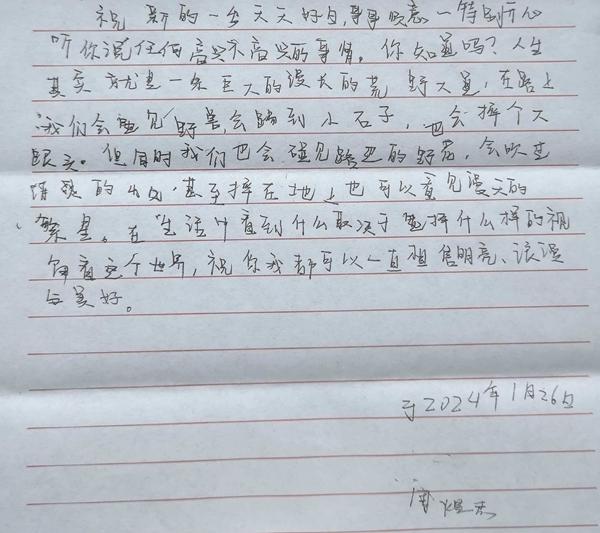 祝 新的一年天天好日,事事顺意一特别开心
听你说任何高兴不高兴的事情。你知道吗?人生
其实就是一条巨大的漫长的荒野大道,在路上
我们会遇见野兽会踢到小石子,也会摔个大
跟头。但同时我们也会碰见路边的野花,会吹
的,甚至摔在地上也可以看见漫天的
繁星。在生活中看到什么取决于选择什么样的视
角看这个世界,祝你我都可以一直相信明亮、浪漫
与美好。
于2024年1月26日